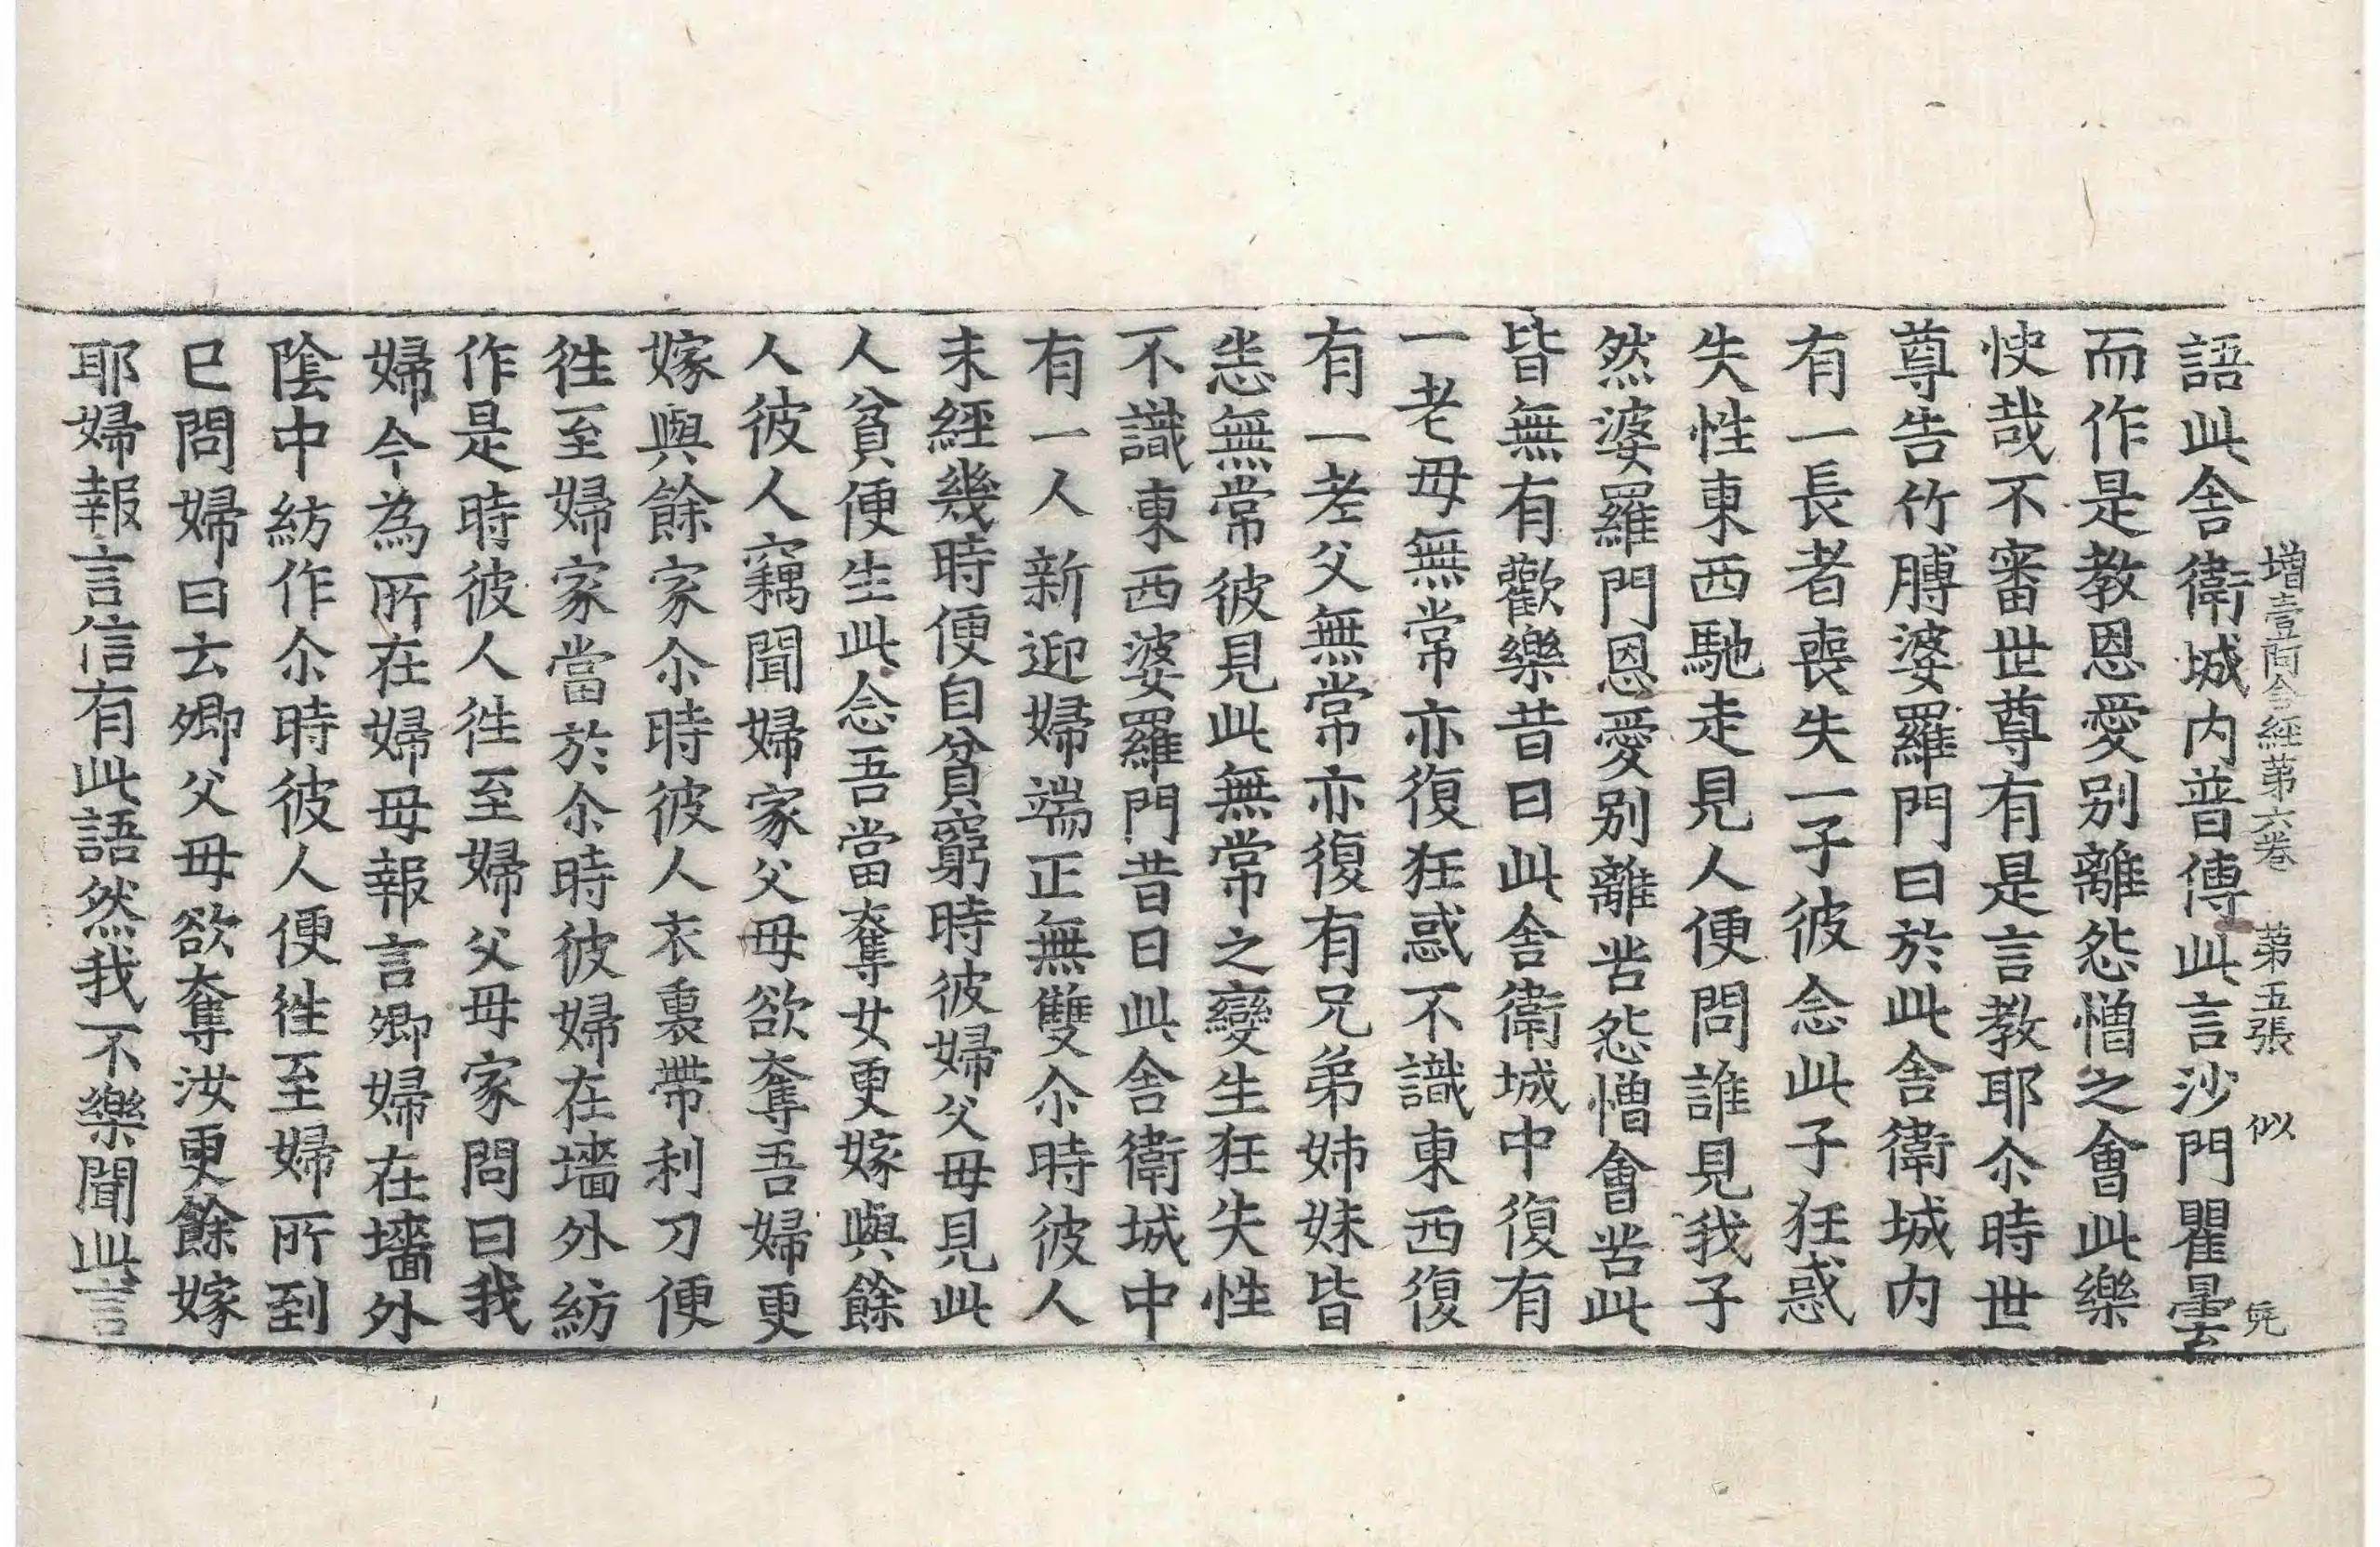 增壹阿含經第六卷 第五張 似
語此舍衛城内普傳此言沙門瞿曇
而作是教恩愛別離怨憎之會此樂
快哉不審世尊有是言教耶尒時世
尊告竹膊婆羅門曰於此舍衛城内
有一長者喪失一子彼念此子狂惑
失性東西馳走見人便問誰見我子
然婆羅門恩愛別離苦怨憎會苦此
皆無有歡樂昔日此舍衛城中復有
一老母無常亦復狂惑不識東西復
有一老父無常亦復有兄弟姊妹皆
悉無常彼見此無常之變生狂失性
不識東西婆羅門昔日此舍衛城中
有一人新迎婦端正無雙尒時彼人
未經幾時便自貧窮時彼婦父母見此
人貧便生此念吾當奪女更嫁與餘
人彼人竊聞婦家父母欲奪吾婦更
嫁與餘家尒時彼人衣裏帶利刀便
徃至婦家當於尒時彼婦在墻外紡
作是時彼人徃至婦父母家問曰我
婦今為所在婦母報言卿婦在墻外
陰中紡作尒時彼人便徃至婦所到
已問婦曰云卿父母欲奪汝更餘嫁
耶婦報言信有此語然我不樂聞此言